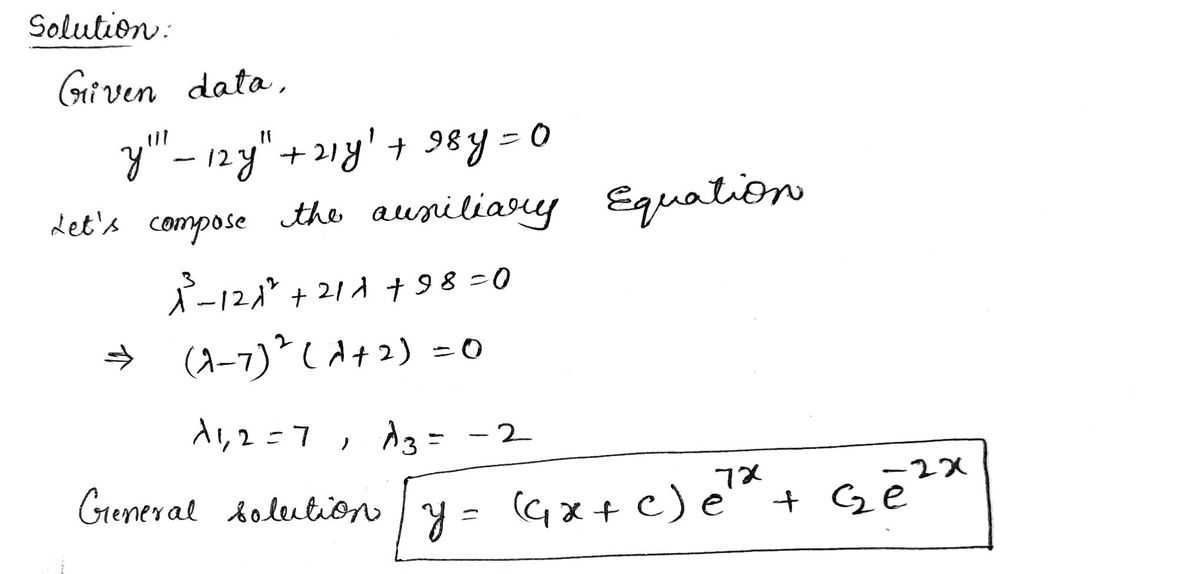 Solution:
Given data,
y''' - 12y'' + 21y' + 98y = 0
Let's compose the auxiliary Equation
λ³ - 12λ² + 21λ + 98 = 0
⇒ (λ-7)² (λ+2) = 0
λ1,2 = 7 , λ3 = -2
General solution y = (C₁x + C) e^{7x} + C₂e^{-2x}